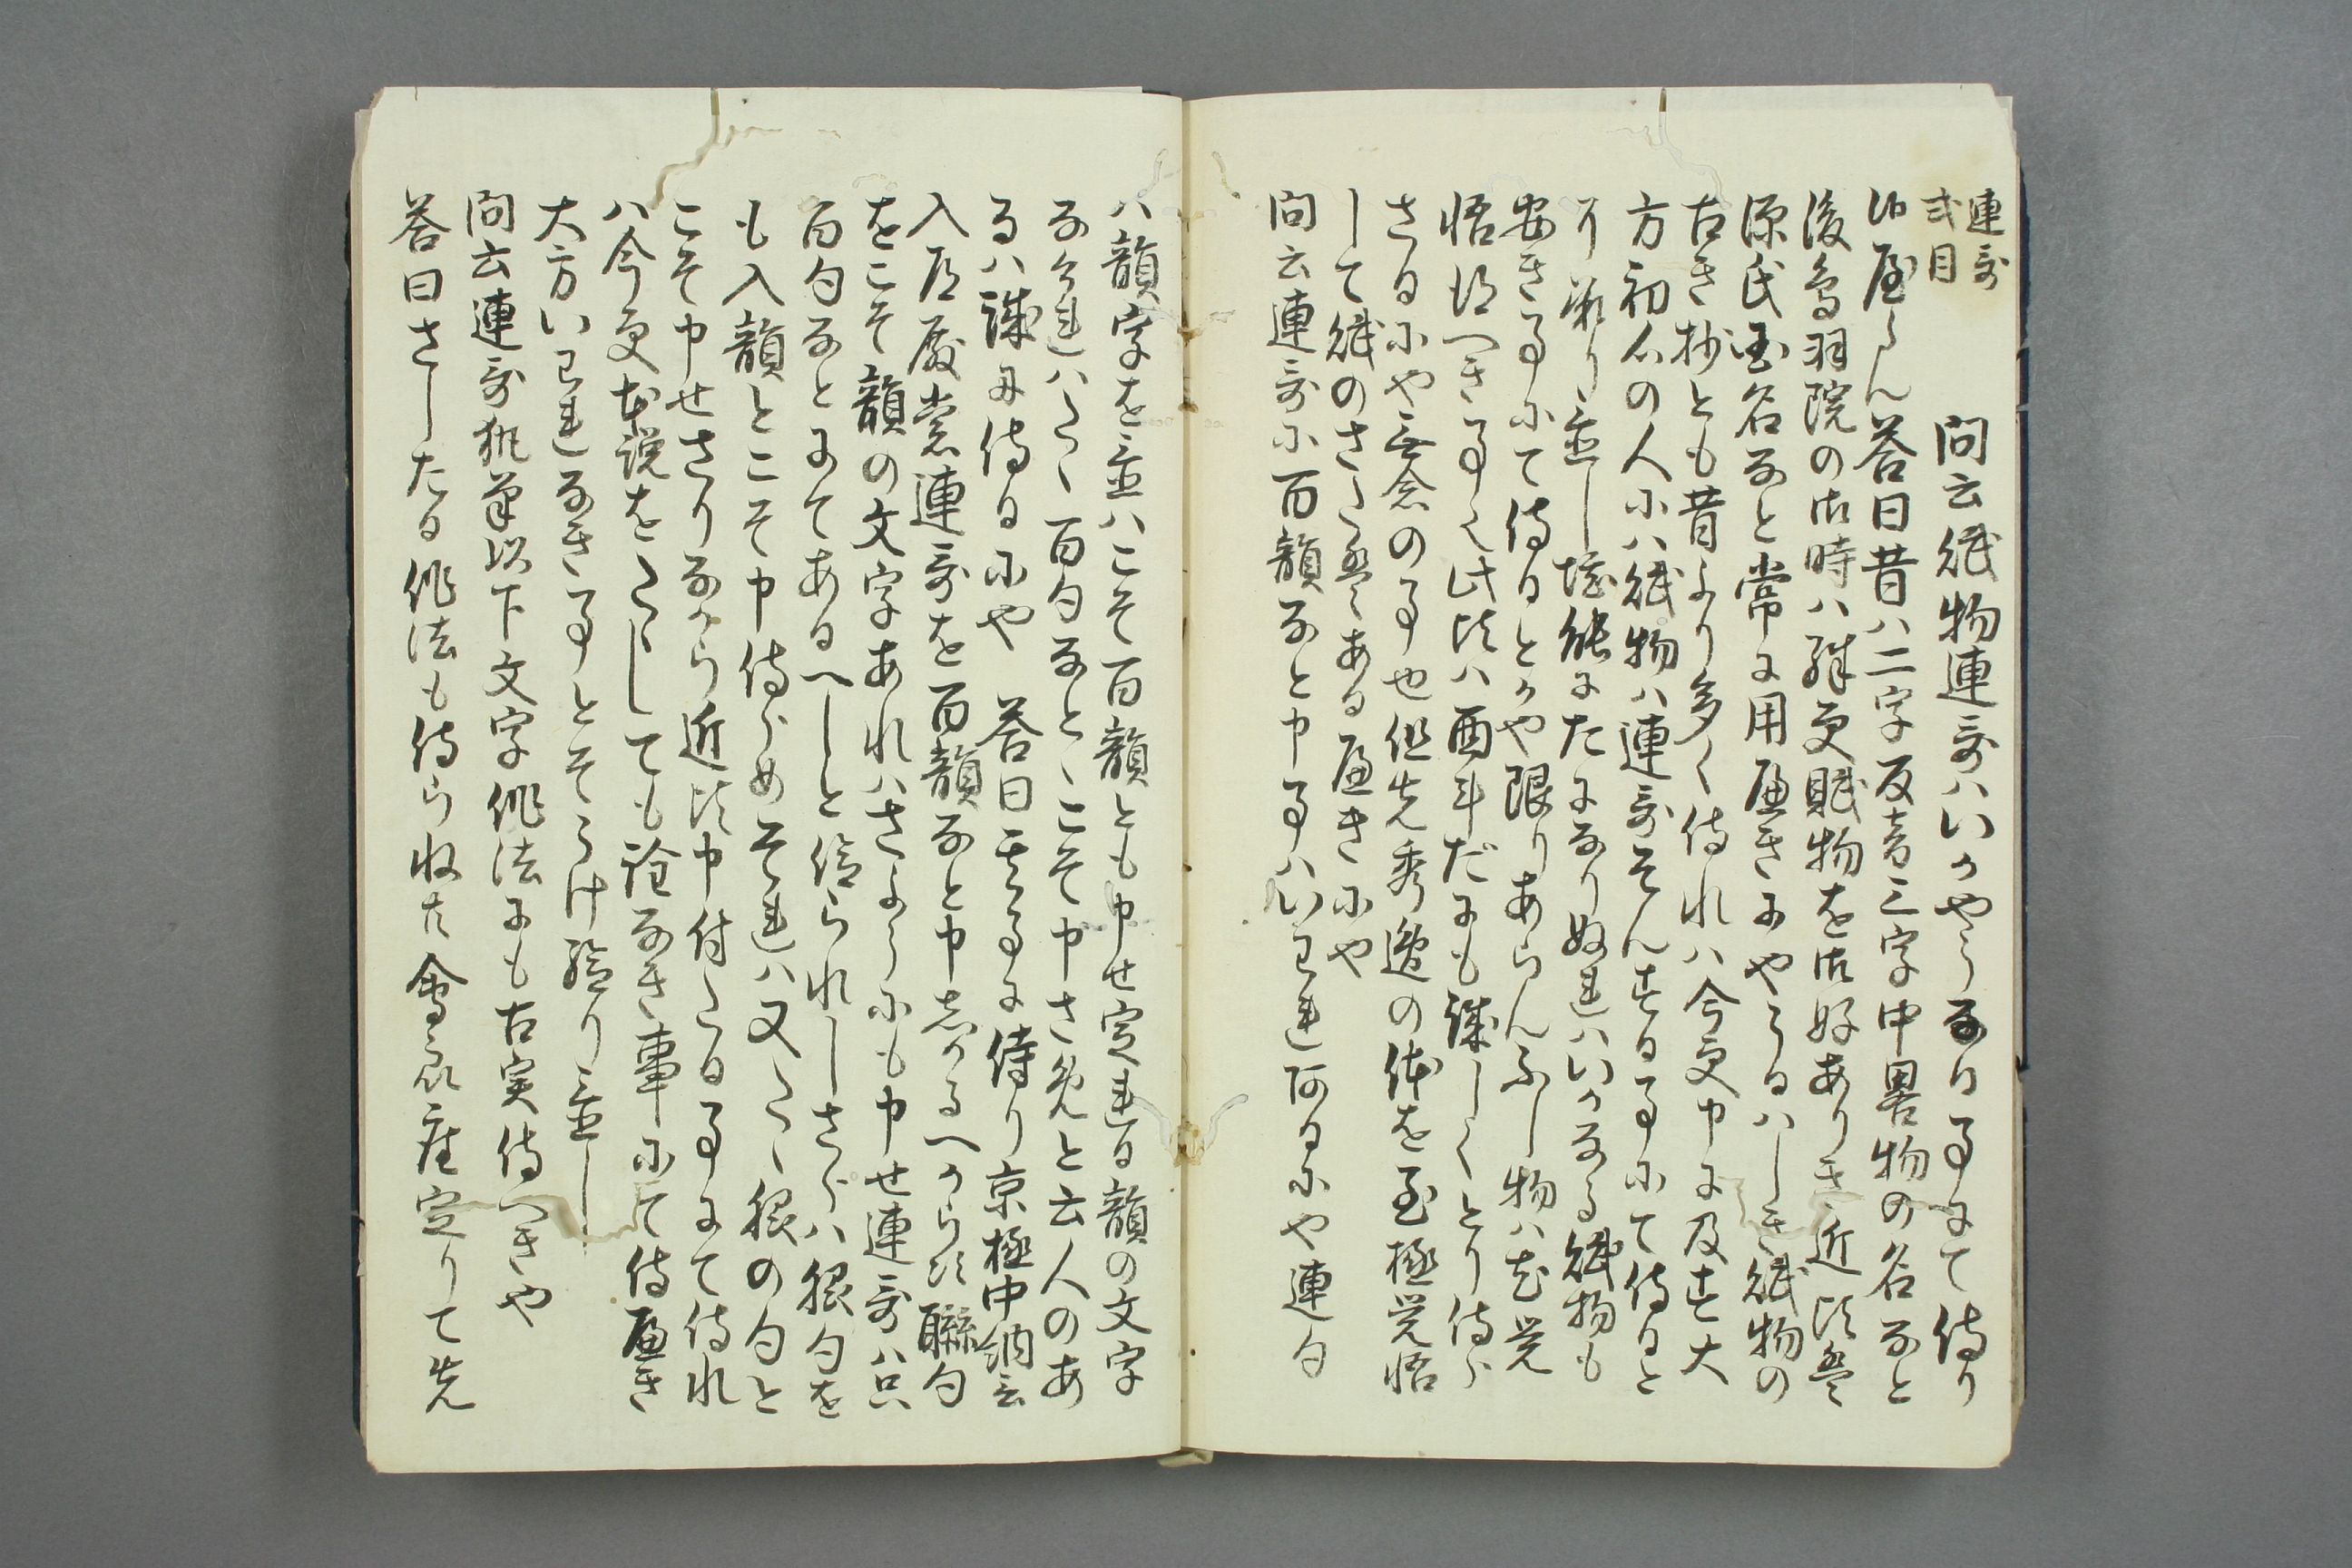 連哥
式目
問云賦物連哥ハいかやうなる事にて侍り
けるやらん答曰昔ハ二字反音三字中畧物の名なと
後鳥羽院の御時ハ殊更賦物を御好ありき近頃は
源氏国名なと常に用へきにやうるハしき賦物の
古き抄とも昔より多く侍れハ今更申に及す大
方初心の人にハ賦物ハ連哥そんする事にて侍ると
り並し堪能になりぬれハいかなる賦物も
安き事にて侍るとかや限りあらんふし物ハ覚
悟侍へき事也此頃ハ酉半だにも誠しくとり侍ら
さるにや無念の事也但先秀逸の体を至極覚悟
して賦のさたはあるへきにや
問云連哥に百韻なと申事ハいわれ有るにや連句
ハ韻字を並ハこそ百韻とも申せ定れる韻の文字
なけれハたゝ百句なとゝこそ申さめと云人のあ
るハ誠に侍るにや 答曰其事に侍り京極中納言
入道殿常連哥を百韻なと申すへからす聯句
をこそ韻の文字あれハさやうにも申せ連哥ハ只
百句なとにてあるへしと仰られしさらハ韻句を
も入韻とこそ申侍らめそれハ又たゝ韻の句と
こそ申せさりなから近頃申付たる事にて侍れ
ハ今更本説をたゝしても詮なき事にて侍へき
大方いわれなき事とそうけ給り並し
問云連哥執筆以下文字作法にも古実侍へきや
答曰さしたる作法も侍らねと會衆座定りて先